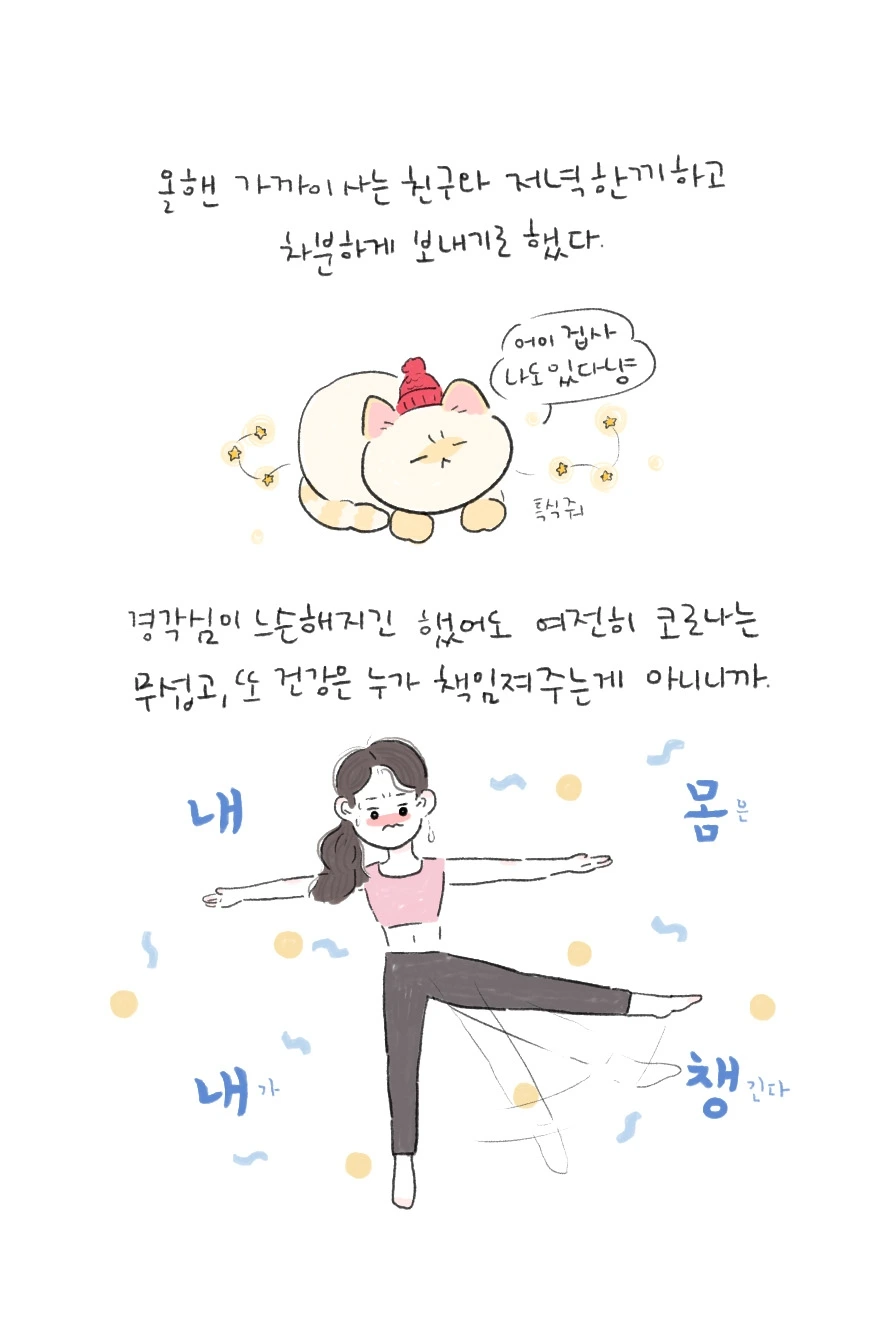 올핸 가까이 사는 친구와 저녁 한끼하고
차분하게 보내기로 했다.
어이 집사
나도 있다냥
특식줘
경각심이 느슨해지긴 했어도 여전히 코로나는
무섭고, 또 건강은 누가 책임져주는게 아니니까.
내 몸은
내가 챙긴다